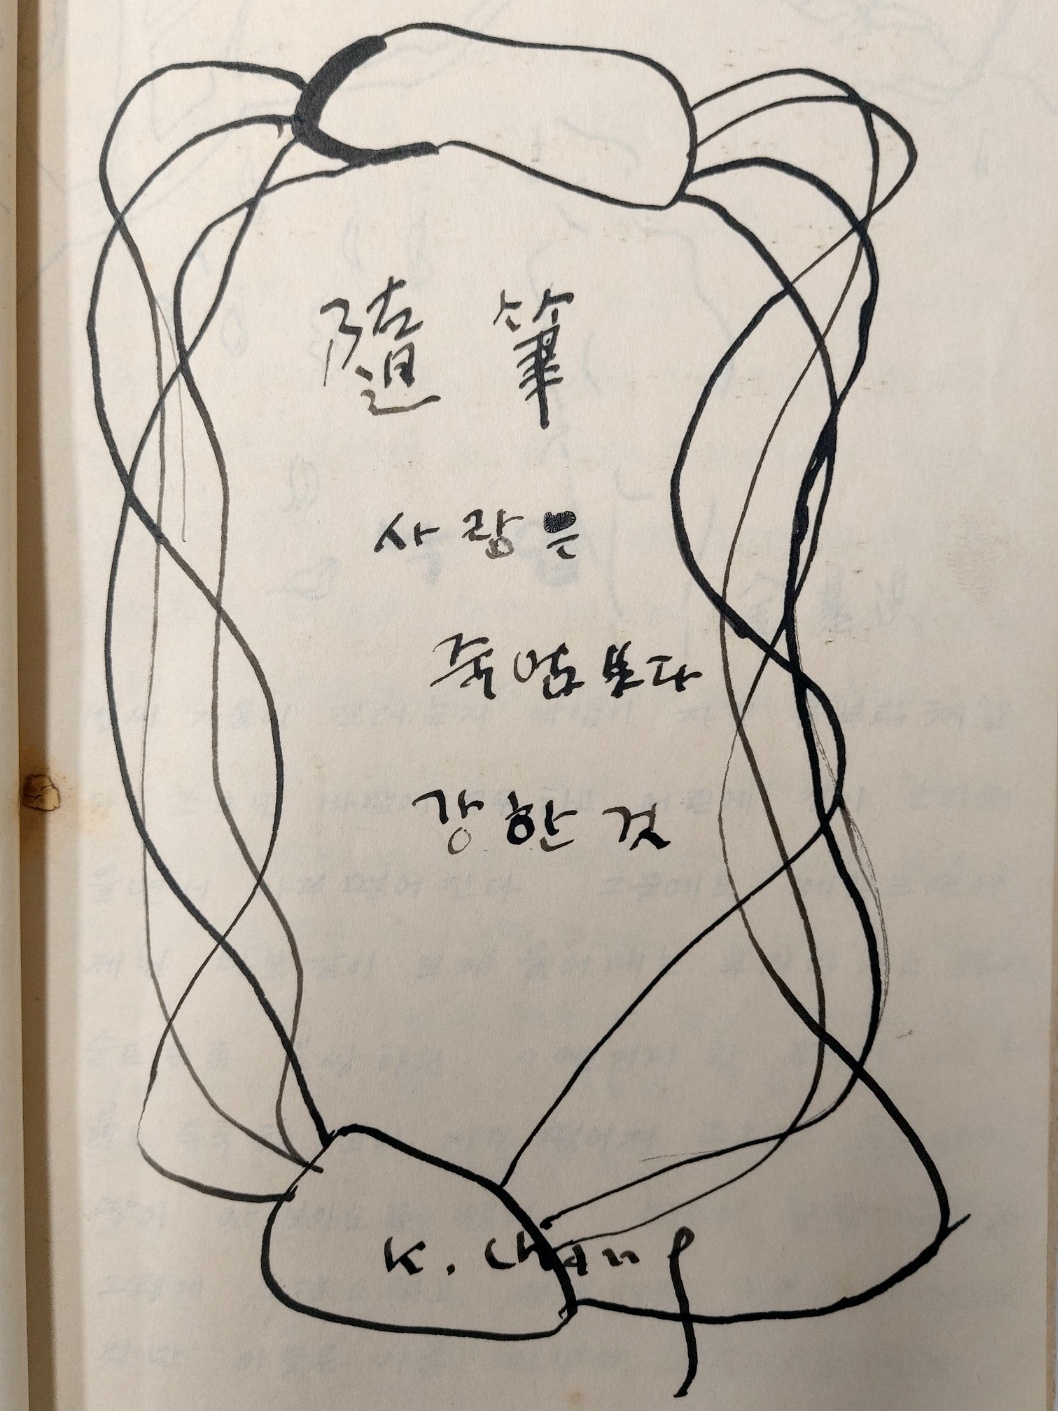 隨筆
사랑은
죽엄보다
강한 것
K. Chang